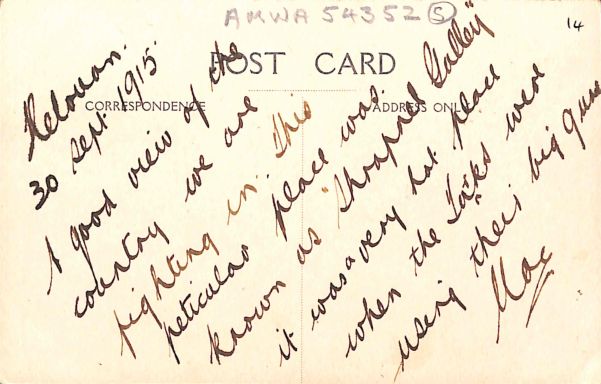 AMWA 54352 (5)
14
POST CARD
CORRESPONDENCE
ADDRESS ONLY
Helouan.
30 sept. 1915.
A good view of the
country we are
fighting in. This
peticular place was
known as "Shrapnel Galley"
it was a very hot place
when the Torks were
using their big guns
Mac